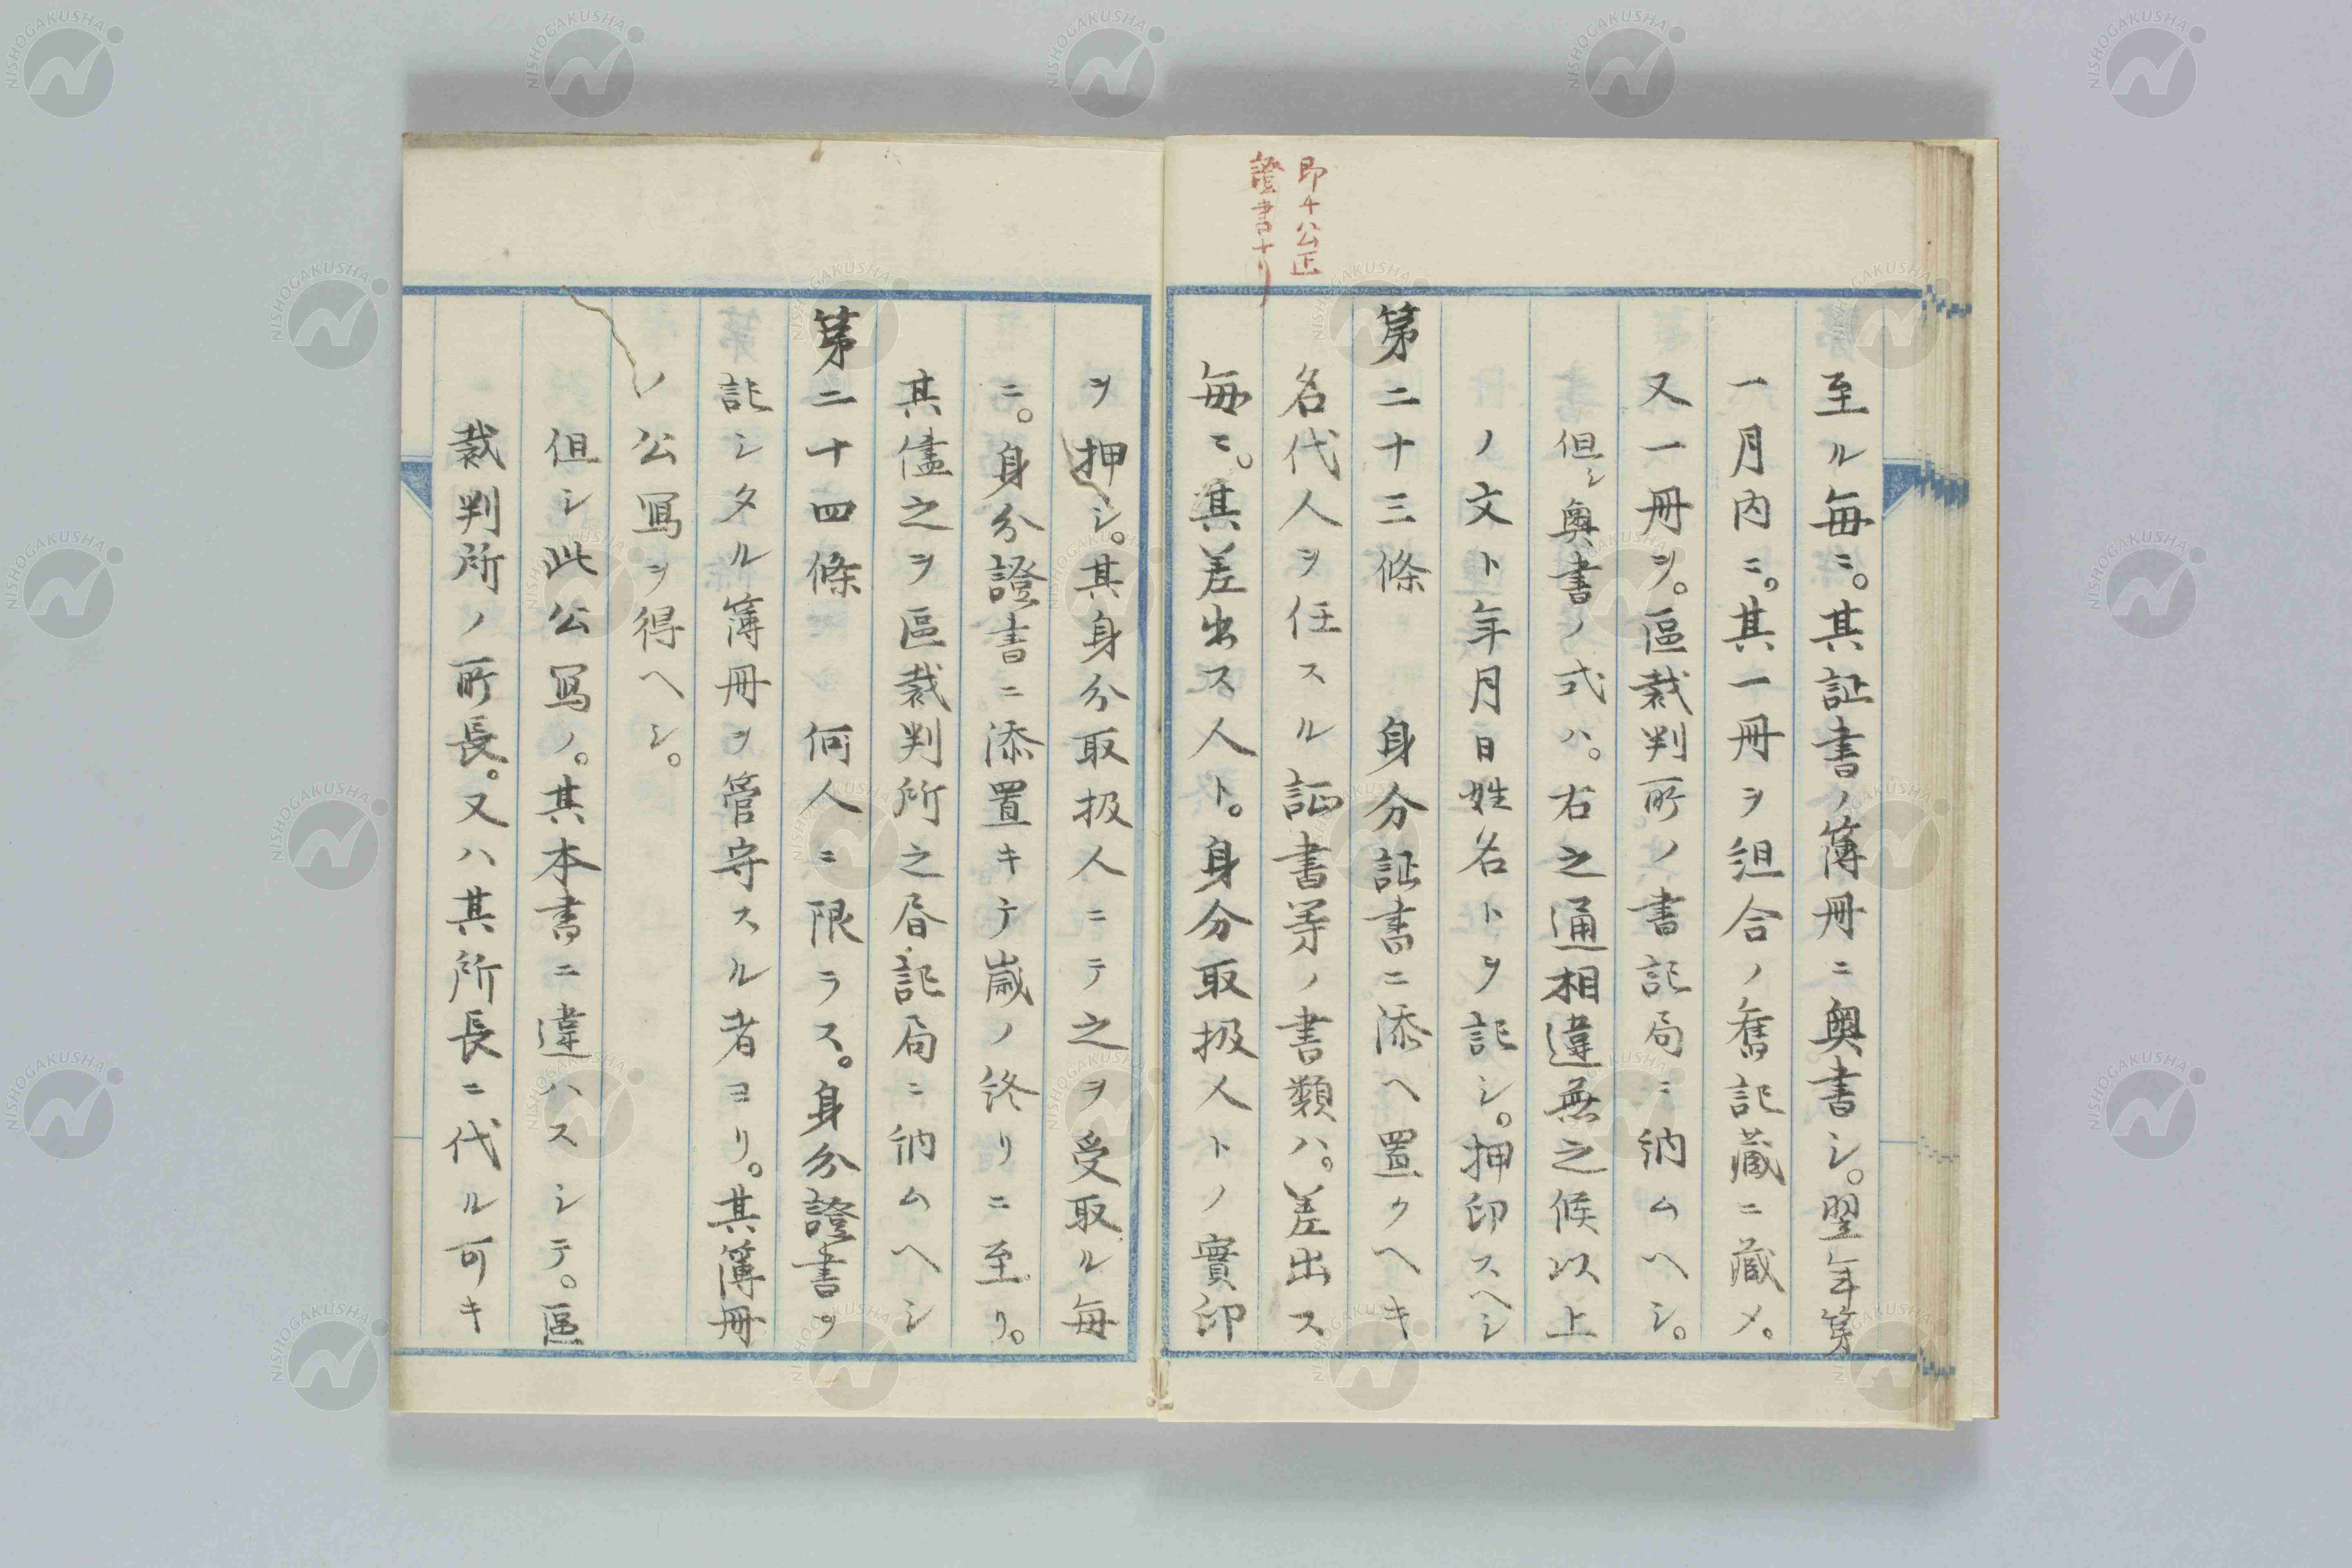 即チ公正
證書ナリ
至ル毎ニ。其証書ノ簿冊ニ奥書シ。翌年第
一月内ニ。其一冊ヲ組合ノ舊記蔵ニ蔵メ。
又一冊ヲ。區裁判所ノ書記局ニ納ムヘシ。
但シ奥書ノ式ハ。右之通相違無之候以上
ノ文ト年月日姓名トヲ記シ。押印スヘシ
第二十三條 身分証書ニ添ヘ置クヘキ
名代人ヲ任スル証書等ノ書類ハ。差出ス
毎ニ。其差出ス人ト。身分取扱人トノ實印
ヲ押シ。其身分取扱人ニテ之ヲ受取ル毎
ニ。身分證書ニ添置キテ歳ノ終リニ至リ。
其儘之ヲ區裁判所之書記局ニ納ムヘシ
第二十四條 何人ニ限ラス。身分證書ヲ
記シタル簿冊ヲ管守スル者ヨリ。其簿冊
ノ公寫ヲ得ヘシ。
但シ此公寫ノ。其本書ニ違ハスシテ。區
裁判所ノ所長。又ハ其所長ニ代ル可キ
NISHOGAKUSHA